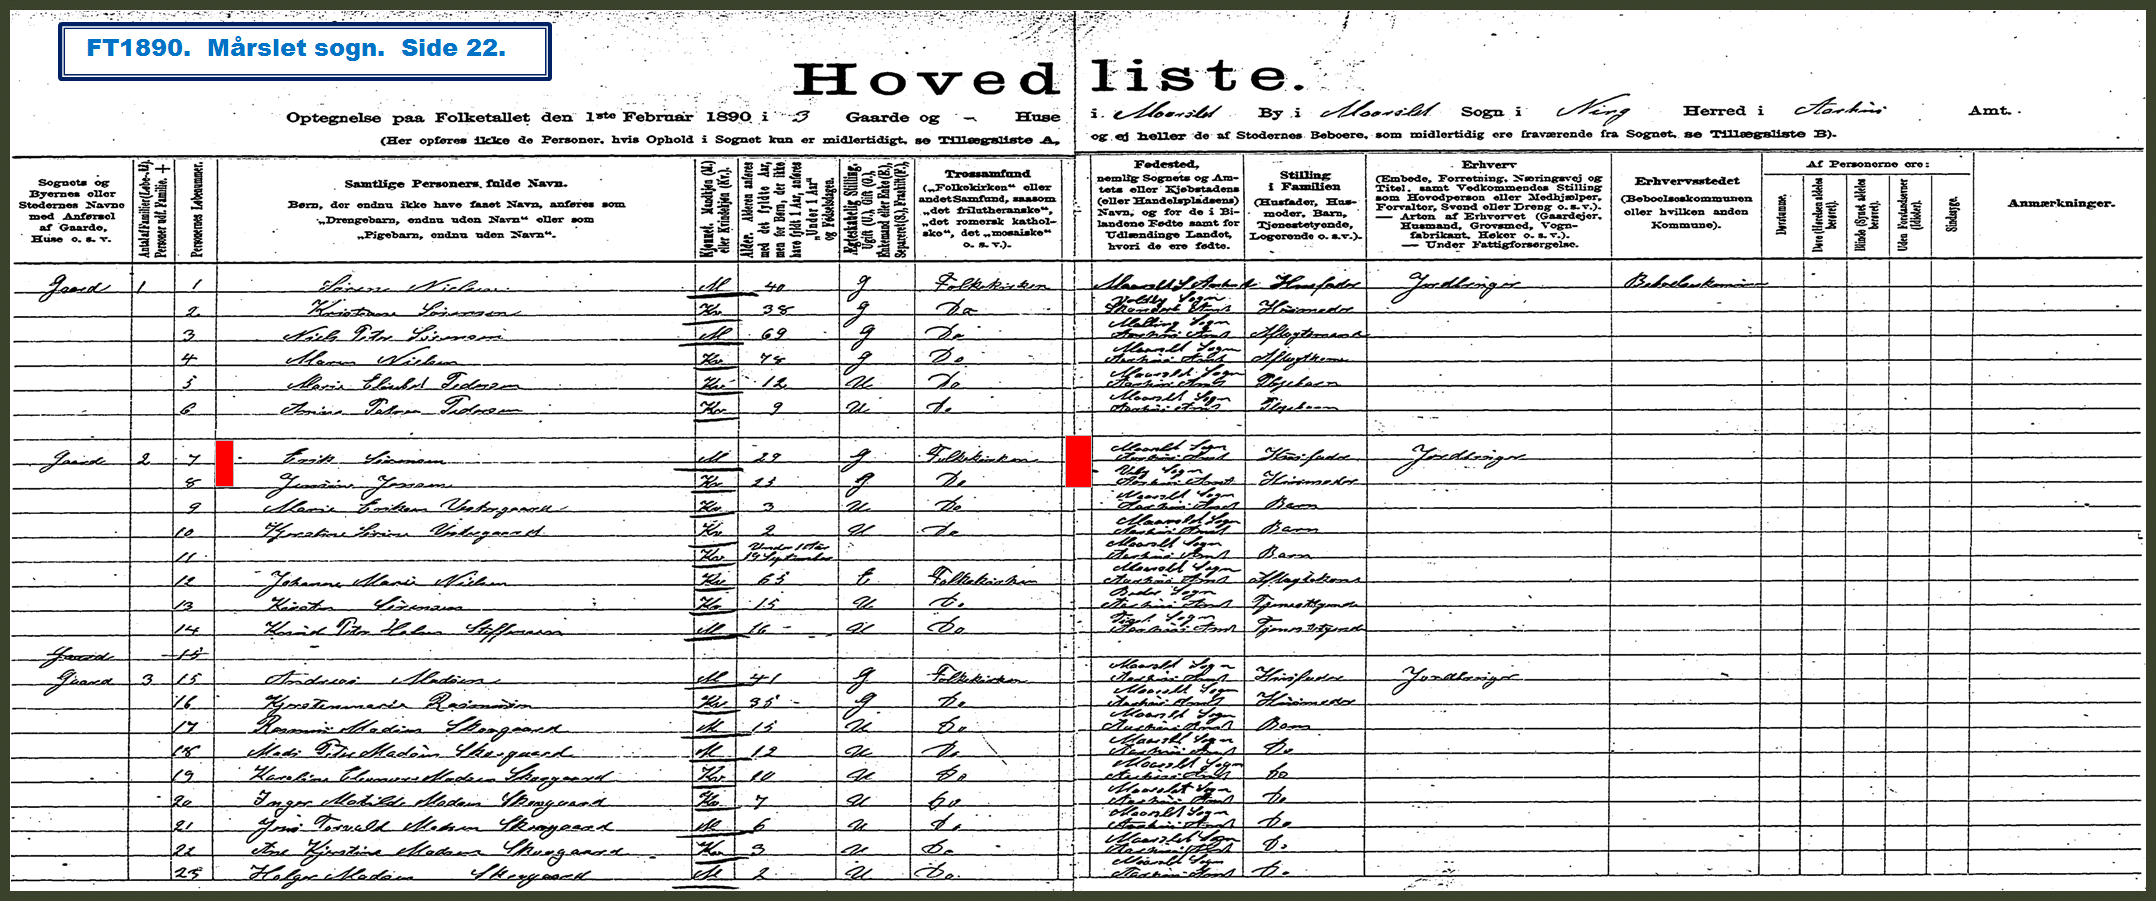 FT1890. Mårslet sogn. Side 22.
Hovedliste.
Optegnelse paa Folketallet den 1ste Februar 1890 i 3 Gaarde og - Huse i Maarslet By i Maarslet Sogn i Ning Herred i Aarhus Amt.
(Her opføres ikke de Personer, hvis Ophold i Sognet kun er midlertidigt, se Tillægsliste A, og ej heller de af Stedernes Beboere, som midlertidig ere fraværende fra Sognet, se Tillægsliste B).
Sognets og Byernes eller Stedernes Navne med Anførsel af Gaarde, Huse o. s. v.
Personernes Løbenummer.
Samtlige Personers fulde Navn.
Børn, der endnu ikke have faaet Navn, anføres som
„Drengebarn, endnu uden Navn“ eller som
„Pigebarn, endnu uden Navn“.
Kjønnet. Mandkjøn (M.) eller Kvindekjøn (Kv.).
Alder. Alderen anføres med det fyldte Aar, men for Børn, der ikke have fyldt 1 Aar, anføres „Under 1 Aar“ og Fødselsdagen.
Ægteskabelig Stilling. Ugift (U.), Gift (G.), Enkemand eller Enke (E.), Separeret (S.), Fraskilt (F.).
Trossamfund
(„Folkekirken“ eller andet Samfund, saasom „det frilutheranske“, „det romersk katholske“, det „mosaiske“ o. s. v.).
Fødested,
nemlig Sognets og Amtets eller Kjøbstadens (eller Handelspladsens) Navn, og for de i Bilandene Fødte samt for Udlændinge Landet, hvori de ere fødte.
Stilling i Familien
(Husfader, Husmoder, Barn, Tjenestetyende, Logerende o. s. v.).
Erhverv
(Embede, Forretning, Næringsvej og Titel, samt Vedkommendes Stilling som Hovedperson eller Medhjælper, Forvalter, Svend eller Dreng o. s. v.).
— Arten af Erhvervet (Gaardejer, Husmand, Grovsmed, Vognfabrikant, Høker o. s. v.).
— Under Fattigforsørgelse.
Erhvervsstedet
(Beboelseskommunen eller hvilken anden Kommune).
Af Personerne ere:
Døvstumme.
Døve (Hørelsen aldeles berøvet).
Blinde (Synet aldeles berøvet).
Uden Forstandsevner (Idioter).
Sindssyge.
Anmærkninger.
Gaard 1 1 Søren Nielsen M 40 G Folkekirken Husfader Jordbruger
2 Kristiane Sørensen Kv 38 G Do Skanderb Amt Husmoder
3 Niels Peter Sørensen M 69 G Do Malling Sogn Aarhus Amt Aftægtsmand
4 Maren Nielsen Kv 78 G Do Maarslet Sogn Aarhus Amt
5 Marie Pedersen Kv 12 U Do Maarslet Sogn Aarhus Amt Plejebarn
6 Pedersen Kv 9 U Do Maarslet Sogn Aarhus Amt Plejebarn
Gaard 2 7 Erik Sørensen M 29 G Folkekirken Maarslet Sogn Aarhus Amt Husfader Jordbruger
8 Jensine Jensen Kv 25 G Do Viby Sogn Aarhus Amt Husmoder
9 Marie Eriksen Vestergaard Kv 3 U Do Maarslet Sogn Aarhus Amt Barn
10 Kjerstine Vestergaard Kv 2 U Do Maarslet Sogn Aarhus Amt Barn
11 Kv Under 1 Aar 19 September Maarslet Sogn Aarhus Amt Barn
12 Johanne Marie Nielsen Kv 65 E Folkekirken Maarslet Sogn Aarhus Amt
13 Kirsten Sørensen Kv 15 U Do Beder Sogn Aarhus Amt Tjenestetyende
14 Peter Steffensen M 16 U Do Sogn Aarhus Amt Tjenestetyende
Gaard 15
Gaard 3 15 Andreas Madsen M 41 G Folkekirken Maarslet Sogn Aarhus Amt Husfader Jordbruger
16 Kjerstenmarie Rasmussen Kv 35 G Do Maarslet Sogn Aarhus Amt Husmoder
17 Rasmus Madsen Skovgaard M 15 U Do Maarslet Sogn Aarhus Amt Barn
18 Mads Peter Madsen Skovgaard M 12 U Do Maarslet Sogn Aarhus Amt Do
19 Karoline Madsen Skovgaard Kv 10 U Do Maarslet Sogn Aarhus Amt Do
20 Inger Matilde Madsen Skovgaard Kv 7 U Do Maarslet Sogn Aarhus Amt Do
21 Jens Torvald Madsen Skovgaard M 6 U Do Maarslet Sogn Aarhus Amt Do
22 Ane Kjerstine Madsen Skovgaard Kv 3 U Do Maarslet Sogn Aarhus Amt Do
23 Holger Madsen Skovgaard M 2 U Do Maarslet Sogn Aarhus Amt Do